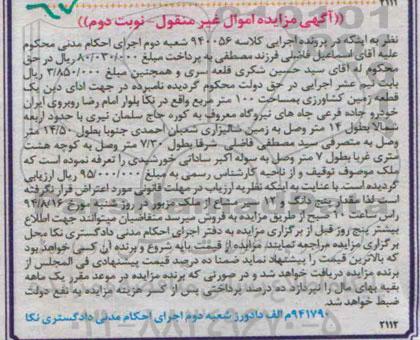 ۲۱۱۱
((آگهی مزایده اموال غیر منقول - نوبت دوم))
نظر به اینکه در پرونده اجرایی کلاسه ۹۴۰۰۵۶ شعبه دوم اجرای احکام مدنی محکوم
علیه آقای اسماعیل فاضلی فرزند مصطفی به پرداخت مبلغ ۸۰/۰۳۰/۰۰۰ ریال در حق
محکوم له آقای سید حسین شکری قلعه سری و همچنین مبلغ ۳/۸۵۰/۰۰۰ ریال
بابت نیم عشر اجرایی در حق دولت محکوم گردیده نامبرده در جهت ادای دین یک
قطعه زمین کشاورزی بمساحت ۱۰۰ متر مربع واقع در نکا بلوار امام رضا روبروی ایران
خودرو جاده فرعی چاه های نیروگاه معروف به کوره حاج سلمان نیری با حدود اربعه
شمالا بطول ۱۴ متر وصل به زمین شالیزاری شعبان احمدی جنوبا بطول ۱۴/۵۰ متر
وصل به متصرفی سید مصطفی فاضلی شرقا بطول ۷/۳۰ متر وصل به کوچه هشت
متری غربا بطول ۷ متر وصل به سوله اکبر ساداتی خورشیدی را تعرفه نموده است که
ملک موصوف توقیف و از ناحیه کارشناس رسمی به مبلغ ۹۵/۰۰۰/۰۰۰ ریال ارزیابی
گردیده است. با عنایت به اینکه نظریه ارزیاب در مهلت قانونی مورد اعتراض قرار نگرفته
است لذا مقدار پنج دانگ و ۱۳ مشاع از ملک مزبور در روز شنبه مورخ ۹۴/۸/۱۶
راس ساعت ۱۰ صبح از طریق مزایده به فروش میرسد متقاضیان میتوانند جهت اطلاع
بیشتر پنج روز قبل از برگزاری مزایده به دفتر اجرای احکام مدنی دادگستری نکا محل
برگزاری مزایده مراجعه نمایند. مزایده از قیمت پایه شروع و برنده آن کسی خواهد بود
که بالاترین قیمت را پیشنهاد نماید ضمنا ده درصد قیمت پیشنهادی فی المجلس از
برنده مزایده دریافت خواهد شد و در صورتی که برنده مزایده در موعد مقرر یک ماهه
بقیه بهای مال را نپردازد ده درصد پرداختی پس از کسر هزینه مزایده به نفع دولت
ضبط خواهد شد.
۹۴۱۷۹۰م الف دادورز شعبه دوم اجرای احکام مدنی دادگستری نکا
۲۱۱۲